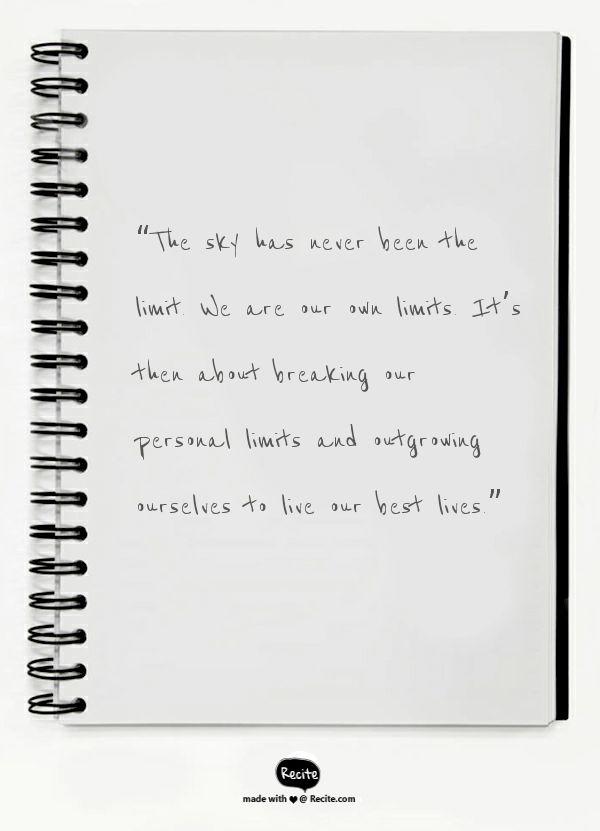 “The sky has never been the
limit. We are our own limits. It's
then about breaking our
personal limits and outgrowing
ourselves to live our best lives.”
Recite
made with ♥ @ Recite.com